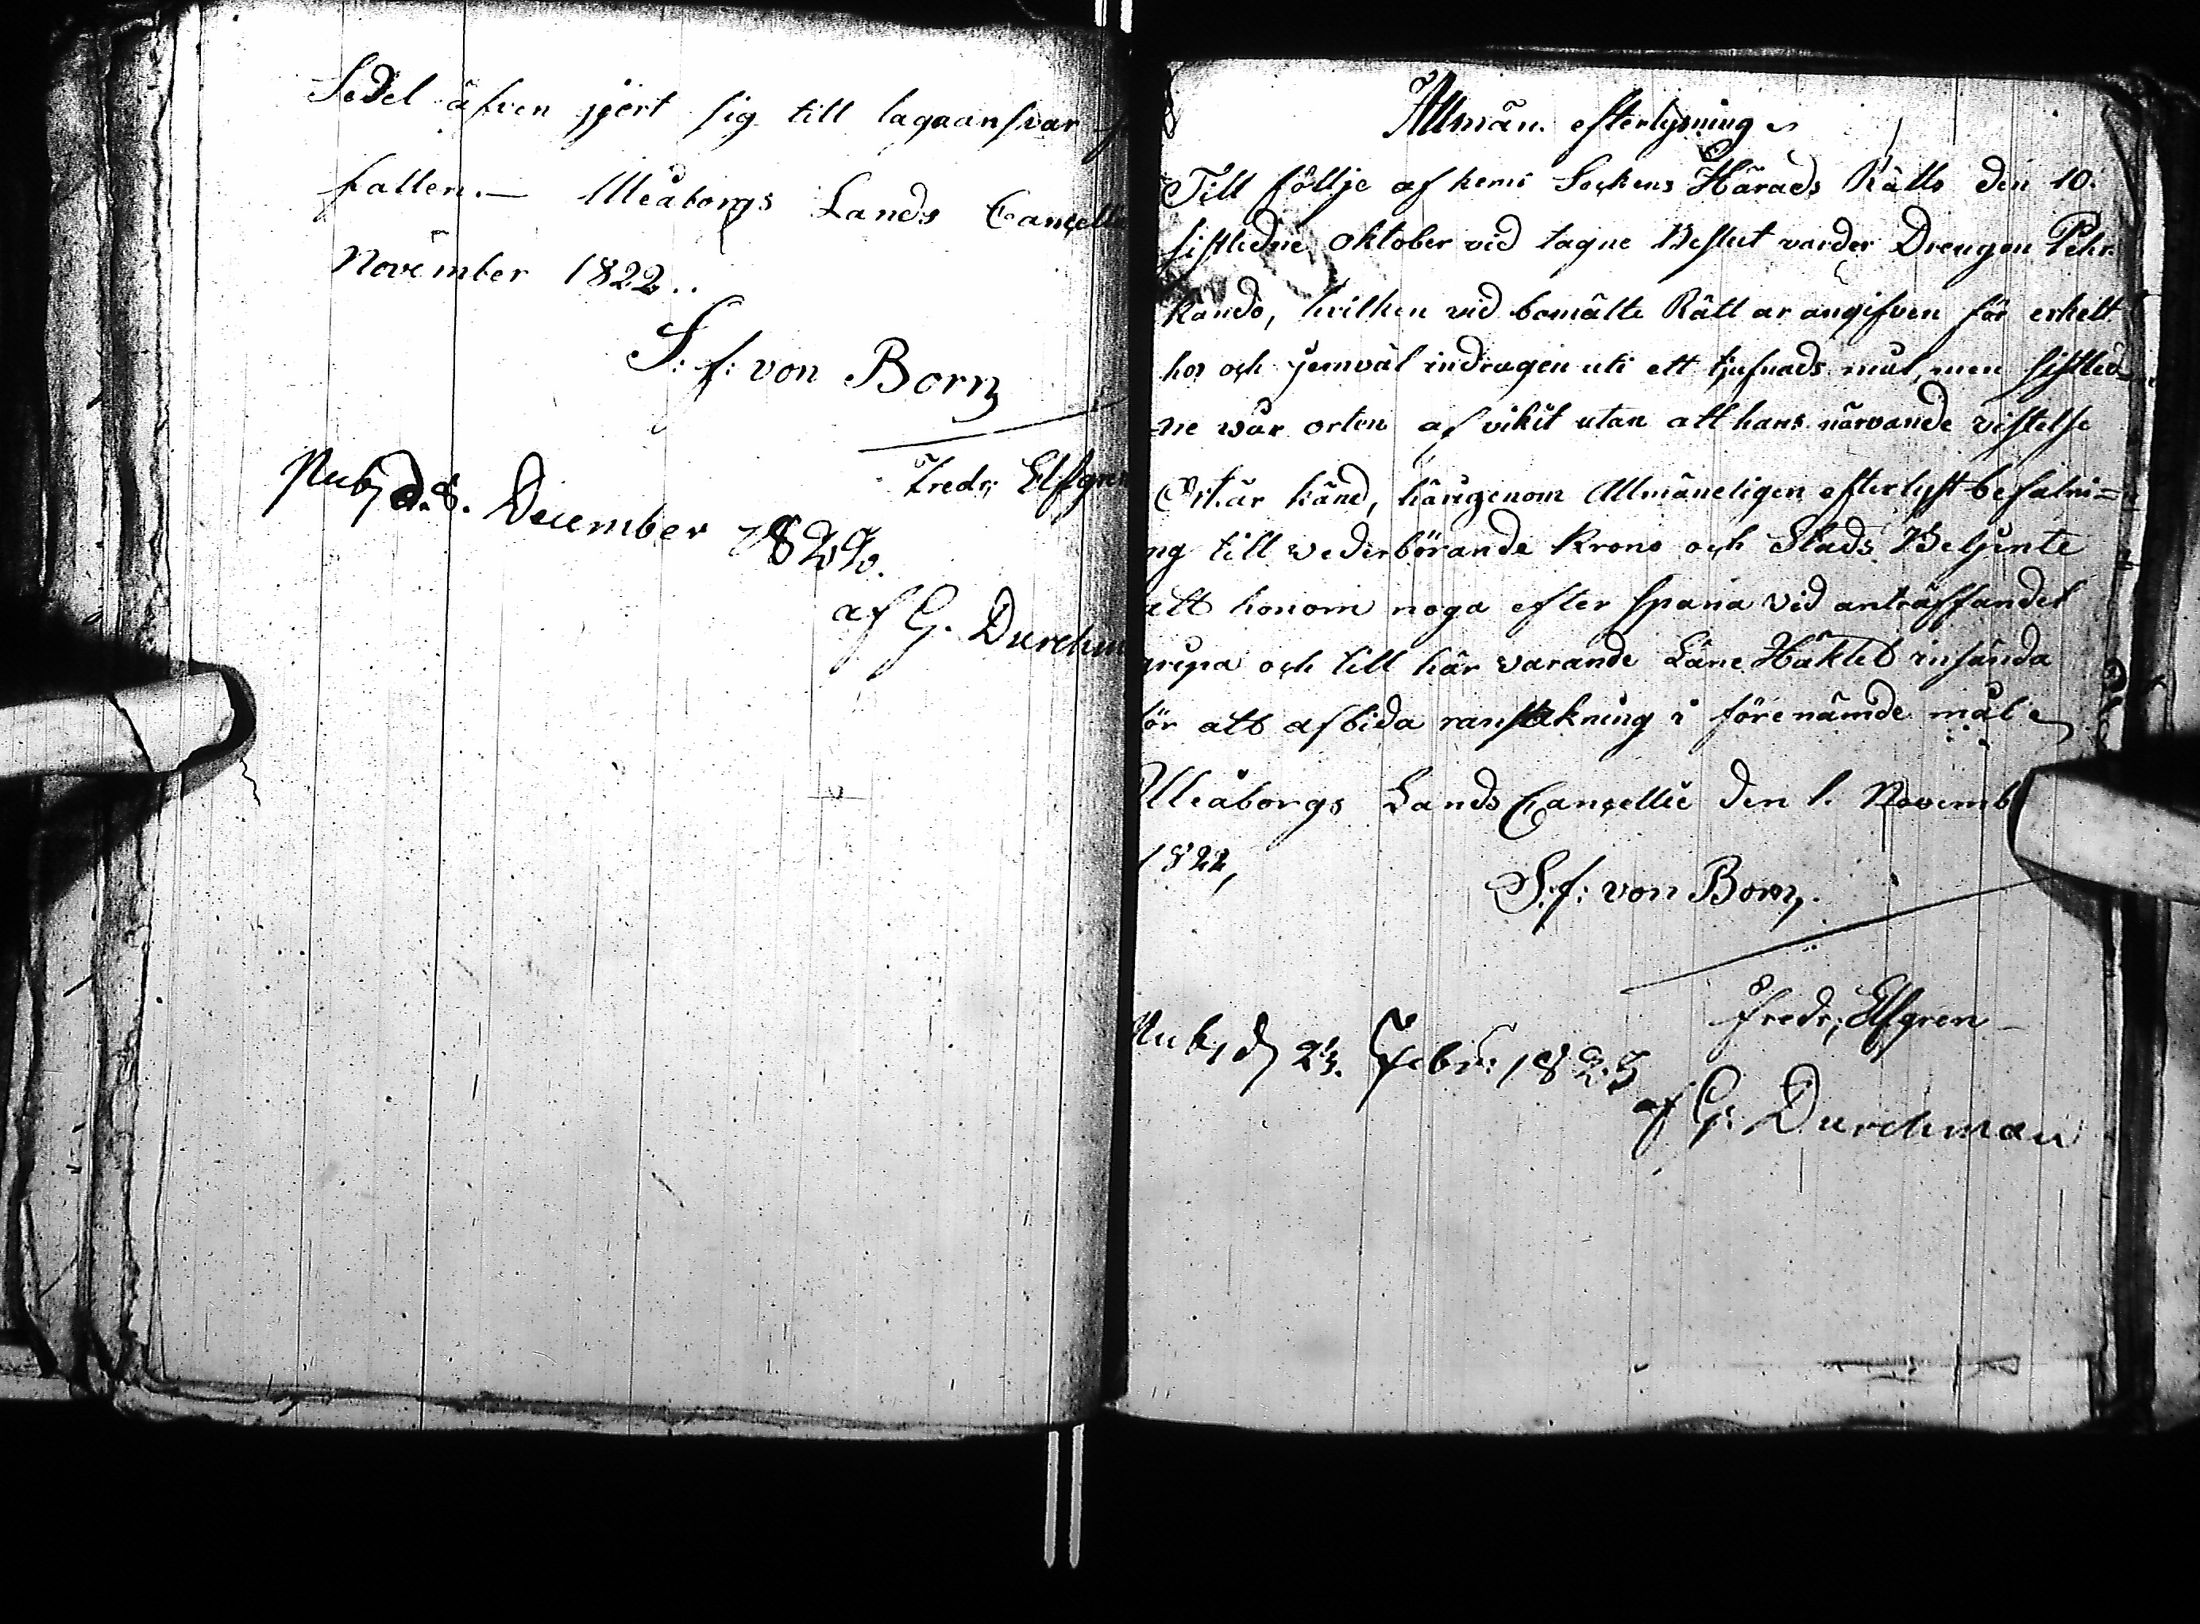 Sedel äfven gjort sig till lagaansvar
fallen.— Uleåborgs Lands Cancelli
November 1822..
S: f: von Born
Fredr; Elfgren
Pub; d. 8. December 1822.
af G. Durchm
Allmän efterlysning
Till föllje af kemi Sockens Härads Rätts den 10.
sistledne oktober vid tagne Beslut varder Drengen Pehr
kando, hvilken vid bemälte Rätt ar angifven för enkelt
hor och jemväl indragen uti ett tjufnads mål, men sistled-
ne wår orten af vikit utan att hans närvande vistelse
Ort är känd, härigenom Allmäneligen efterlyst befalni=
ng till wederbörande Krono och Stads Betjente
att honom noga efter spana vid anträffandet
gripa och till här varande Läne Häktet insända
för att afbida ransakning i förenämde mål
Uleåborgs Lands Cancellie den 1. Novemb
1822,
S. f: von Born,
Fredr; Elfgren
Pub, d 23. Febr: 1823
af G: Durchman